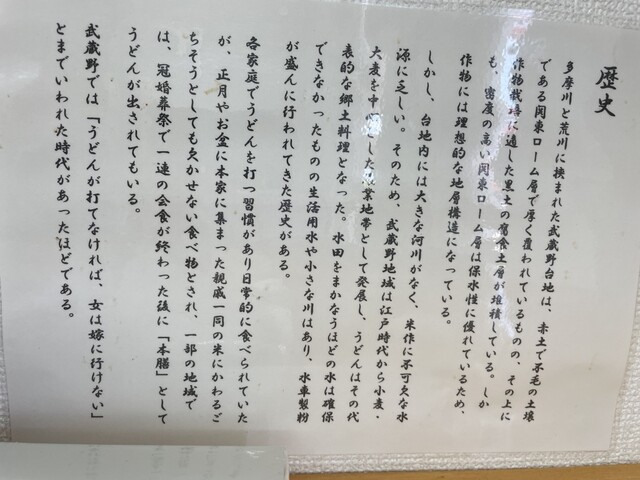 歴史
多摩川と荒川に挟まれた武蔵野台地は、赤土で不毛の土壌
である関東ローム層で厚く覆われているものの、その上に
作物栽培に適した黒土の腐食土層が堆積している。しか
も、密度の高い関東ローム層は保水性に優れているため、
作物には理想的な地層構造になっている。
しかし、台地内には大きな河川がなく、米作に不可欠な水
源に乏しい。そのため、武蔵野地域は江戸時代から小麦・
大麦を中心した農業地帯として発展し、うどんはその代
表的な郷土料理となった。水田をまかなうほどの水は確保
できなかったものの生活用水や小さな川はあり、水車製粉
が盛んに行われてきた歴史がある。
各家庭でうどんを打つ習慣があり日常的に食べられていた
が、正月やお盆に本家に集まった親戚一同の米にかわるご
ちそうとしても欠かせない食べ物とされ、一部の地域で
は、冠婚葬祭で一連の会食が終わった後に「本膳」として
うどんが出されてもいる。
武蔵野では「うどんが打てなければ、女は嫁に行けない」
とまでいわれた時代があったほどである。